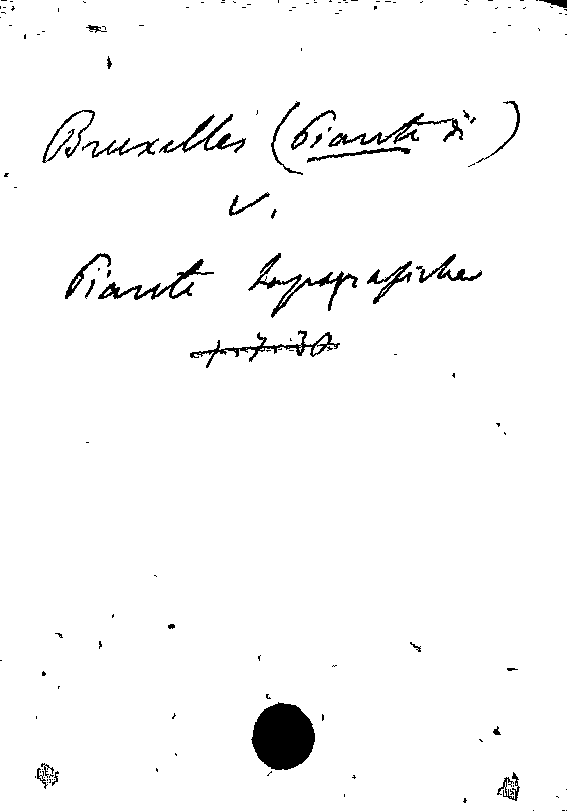 Bruxelles (Piante di)
v.
Piante topografiche
1.7.30